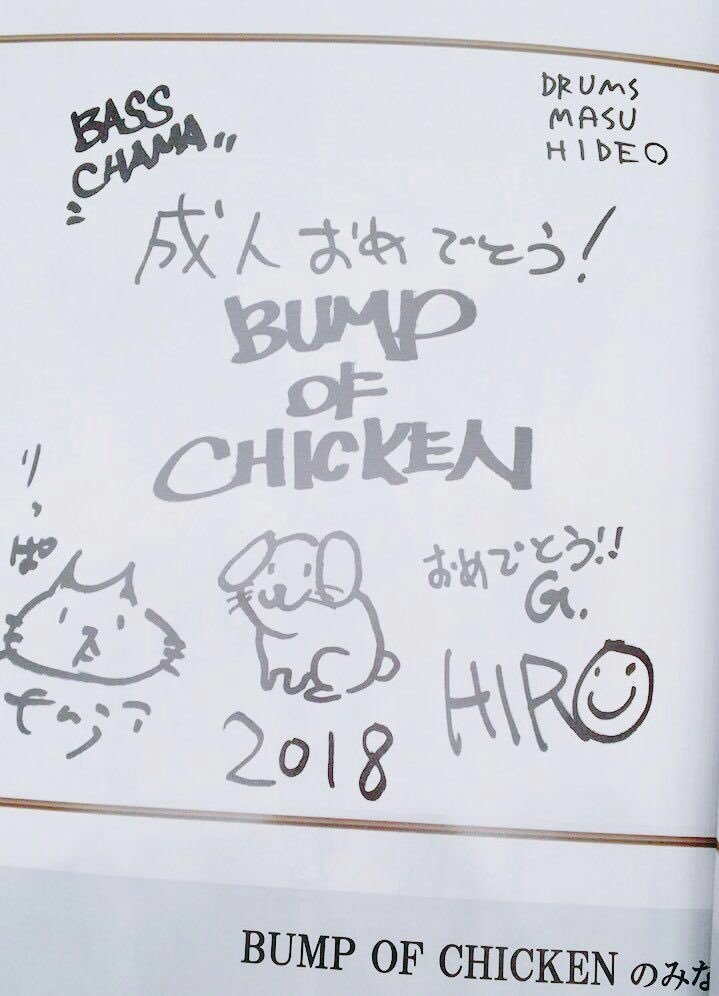 BASS
CHAMA
DRUMS
MASU
HIDEO
成人おめでとう!
BUMP
OF
CHICKEN
りっぱ
おめでとう!!
G.
HIRO
2018
BUMP OF CHICKEN のみな